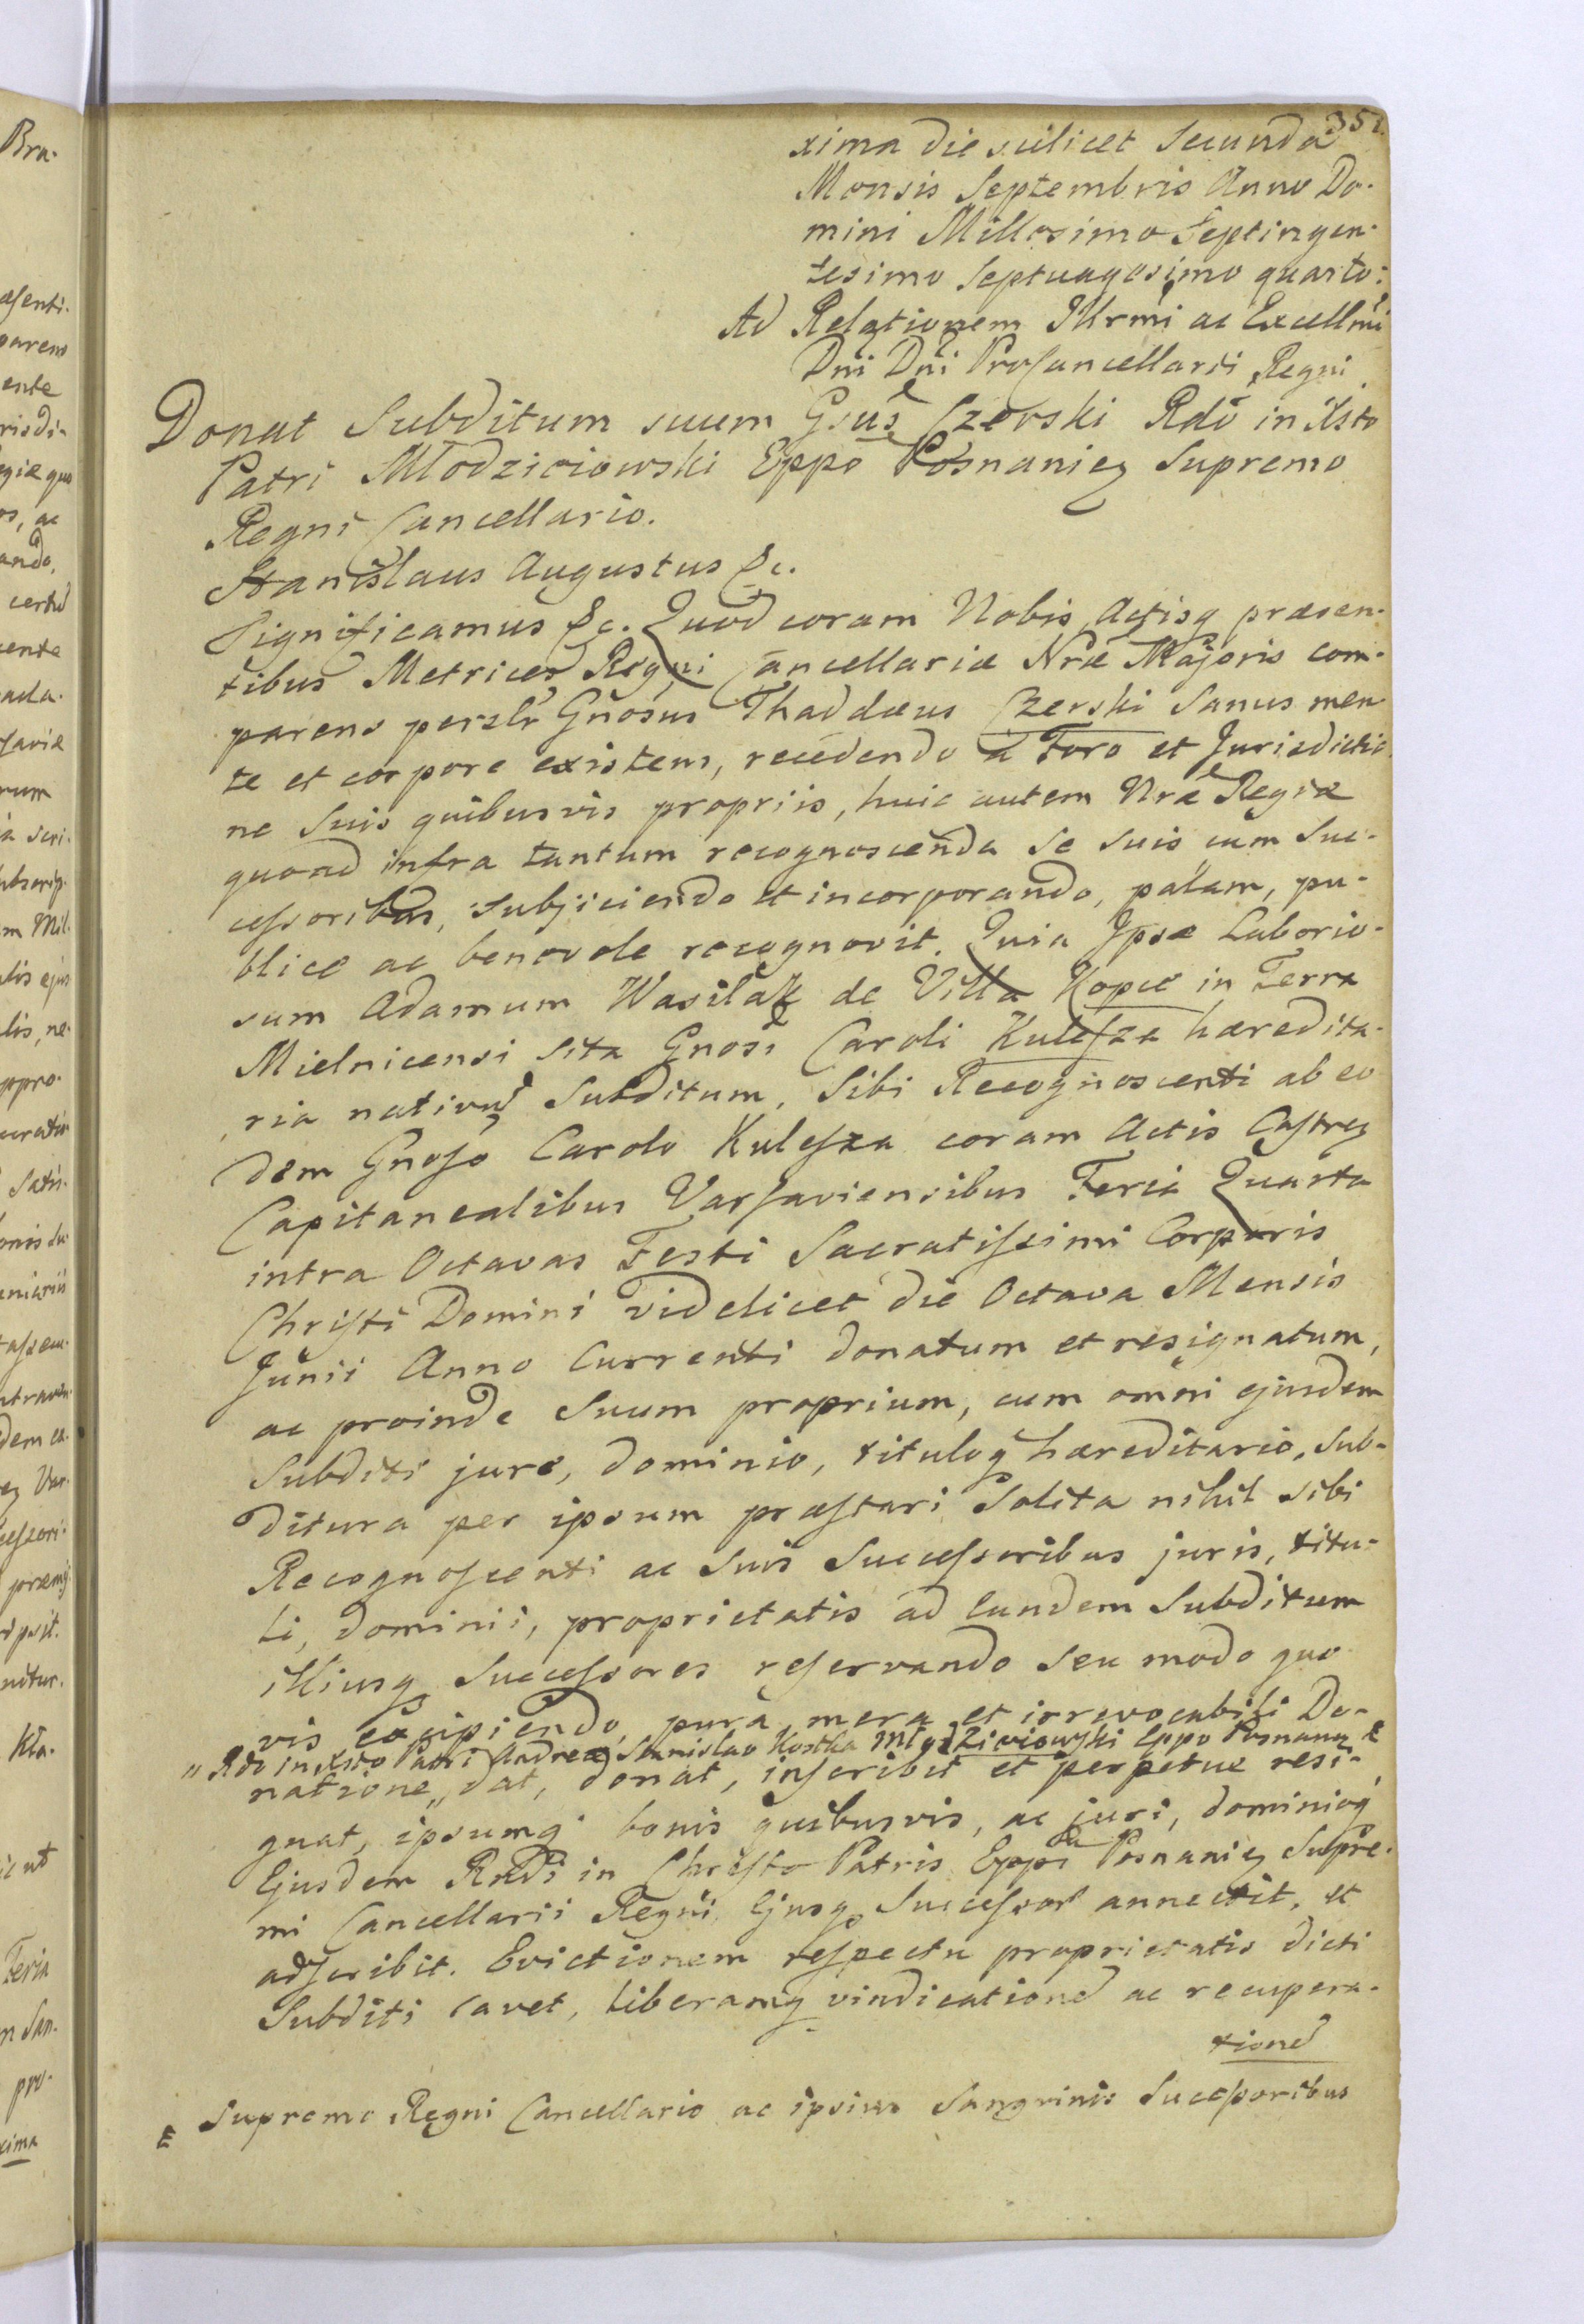 351.
xima die scilicet Secunda
Mensis Septembris Anno Do-
mini Millesimo Septingen-
tesimo Septuagesimo quarto:
Ad Relationem Illrmi ac Excellmi
Dni Dni ProCancellarii Regni
Donat Subditum suum Gsus Czerski Rdo in Xsto
Patri Młodzieiowski Eppo Posnanieꝫ Supremo
Regni Cancellario.
Stanislaus Augustus &c.
Significamus &c. Quod coram Nobis Actisq præsen-
tibus Metrices Regni Cancellariæ Nræ Majoris com-
parens perslr Gnosus Thaddæus Czerski Sanus men-
te et corpore existens, recedendo à Foro et Jurisdictio-
ne Suis quibusvis propriis, huic autem Nræ Regiæ
quoad infra tantum recognoscenda se suis cum Suc-
cessoribus, subjiciendo et incorporando, palam, pu-
blice ac benevole recognovit. Quia Ipse Laborio-
sum Adamum Wasilak de Villa Kopce in Terra
Mielnicensi Sita Gnosi Caroli Kulesza hæredita-
ria nativũ Subditum, Sibi Recognoscenti ab eo-
dem Gnoso Carolo Kulesza coram Actis Castreꝫ
Capitanealibus Varsaviensibus Feria Quarta
intra Octavas Festi Sacratissimi Corporis
Christi Domini videlicet die Octava Mensis
Junii Anno Currenti donatum et resignatum,
ac proinde Suum proprium, cum omni ejusdem
Subditi jure, dominio, tituloq hæreditario, Sub-
ditura per ipsum præstari Solita nihil sibi
Recognoscenti ac Suis Successoribus juris, titu-
li, dominii, proprietatis ad Eundem Subditum
illiusq Successores reservando seu modo quo
vis excipiendo, pura mera et irrevocabili Do-
" Rdo in Xsto Patri Andreæ Stanislao Kostka Młodzieiowski Eppo Posnanꝫ E
natione " dat, donat, inscribit et perpetue resi-
gnat, ipsumq bonis quibusvis, ac juri, dominioq
Ejusdem Rndi in Christo Patris Eppi Posnanieꝫ Supre-
mi Cancellarii Regni, Ejusq Successor annectit, et
adscribit. Evictionem respectu proprietatis dicti
Subditi cavet, liberamq vindicationẽ ac recupera-
tionẽ
E Supremo Regni Cancellario ac ipsius Sangvinis Successoribus